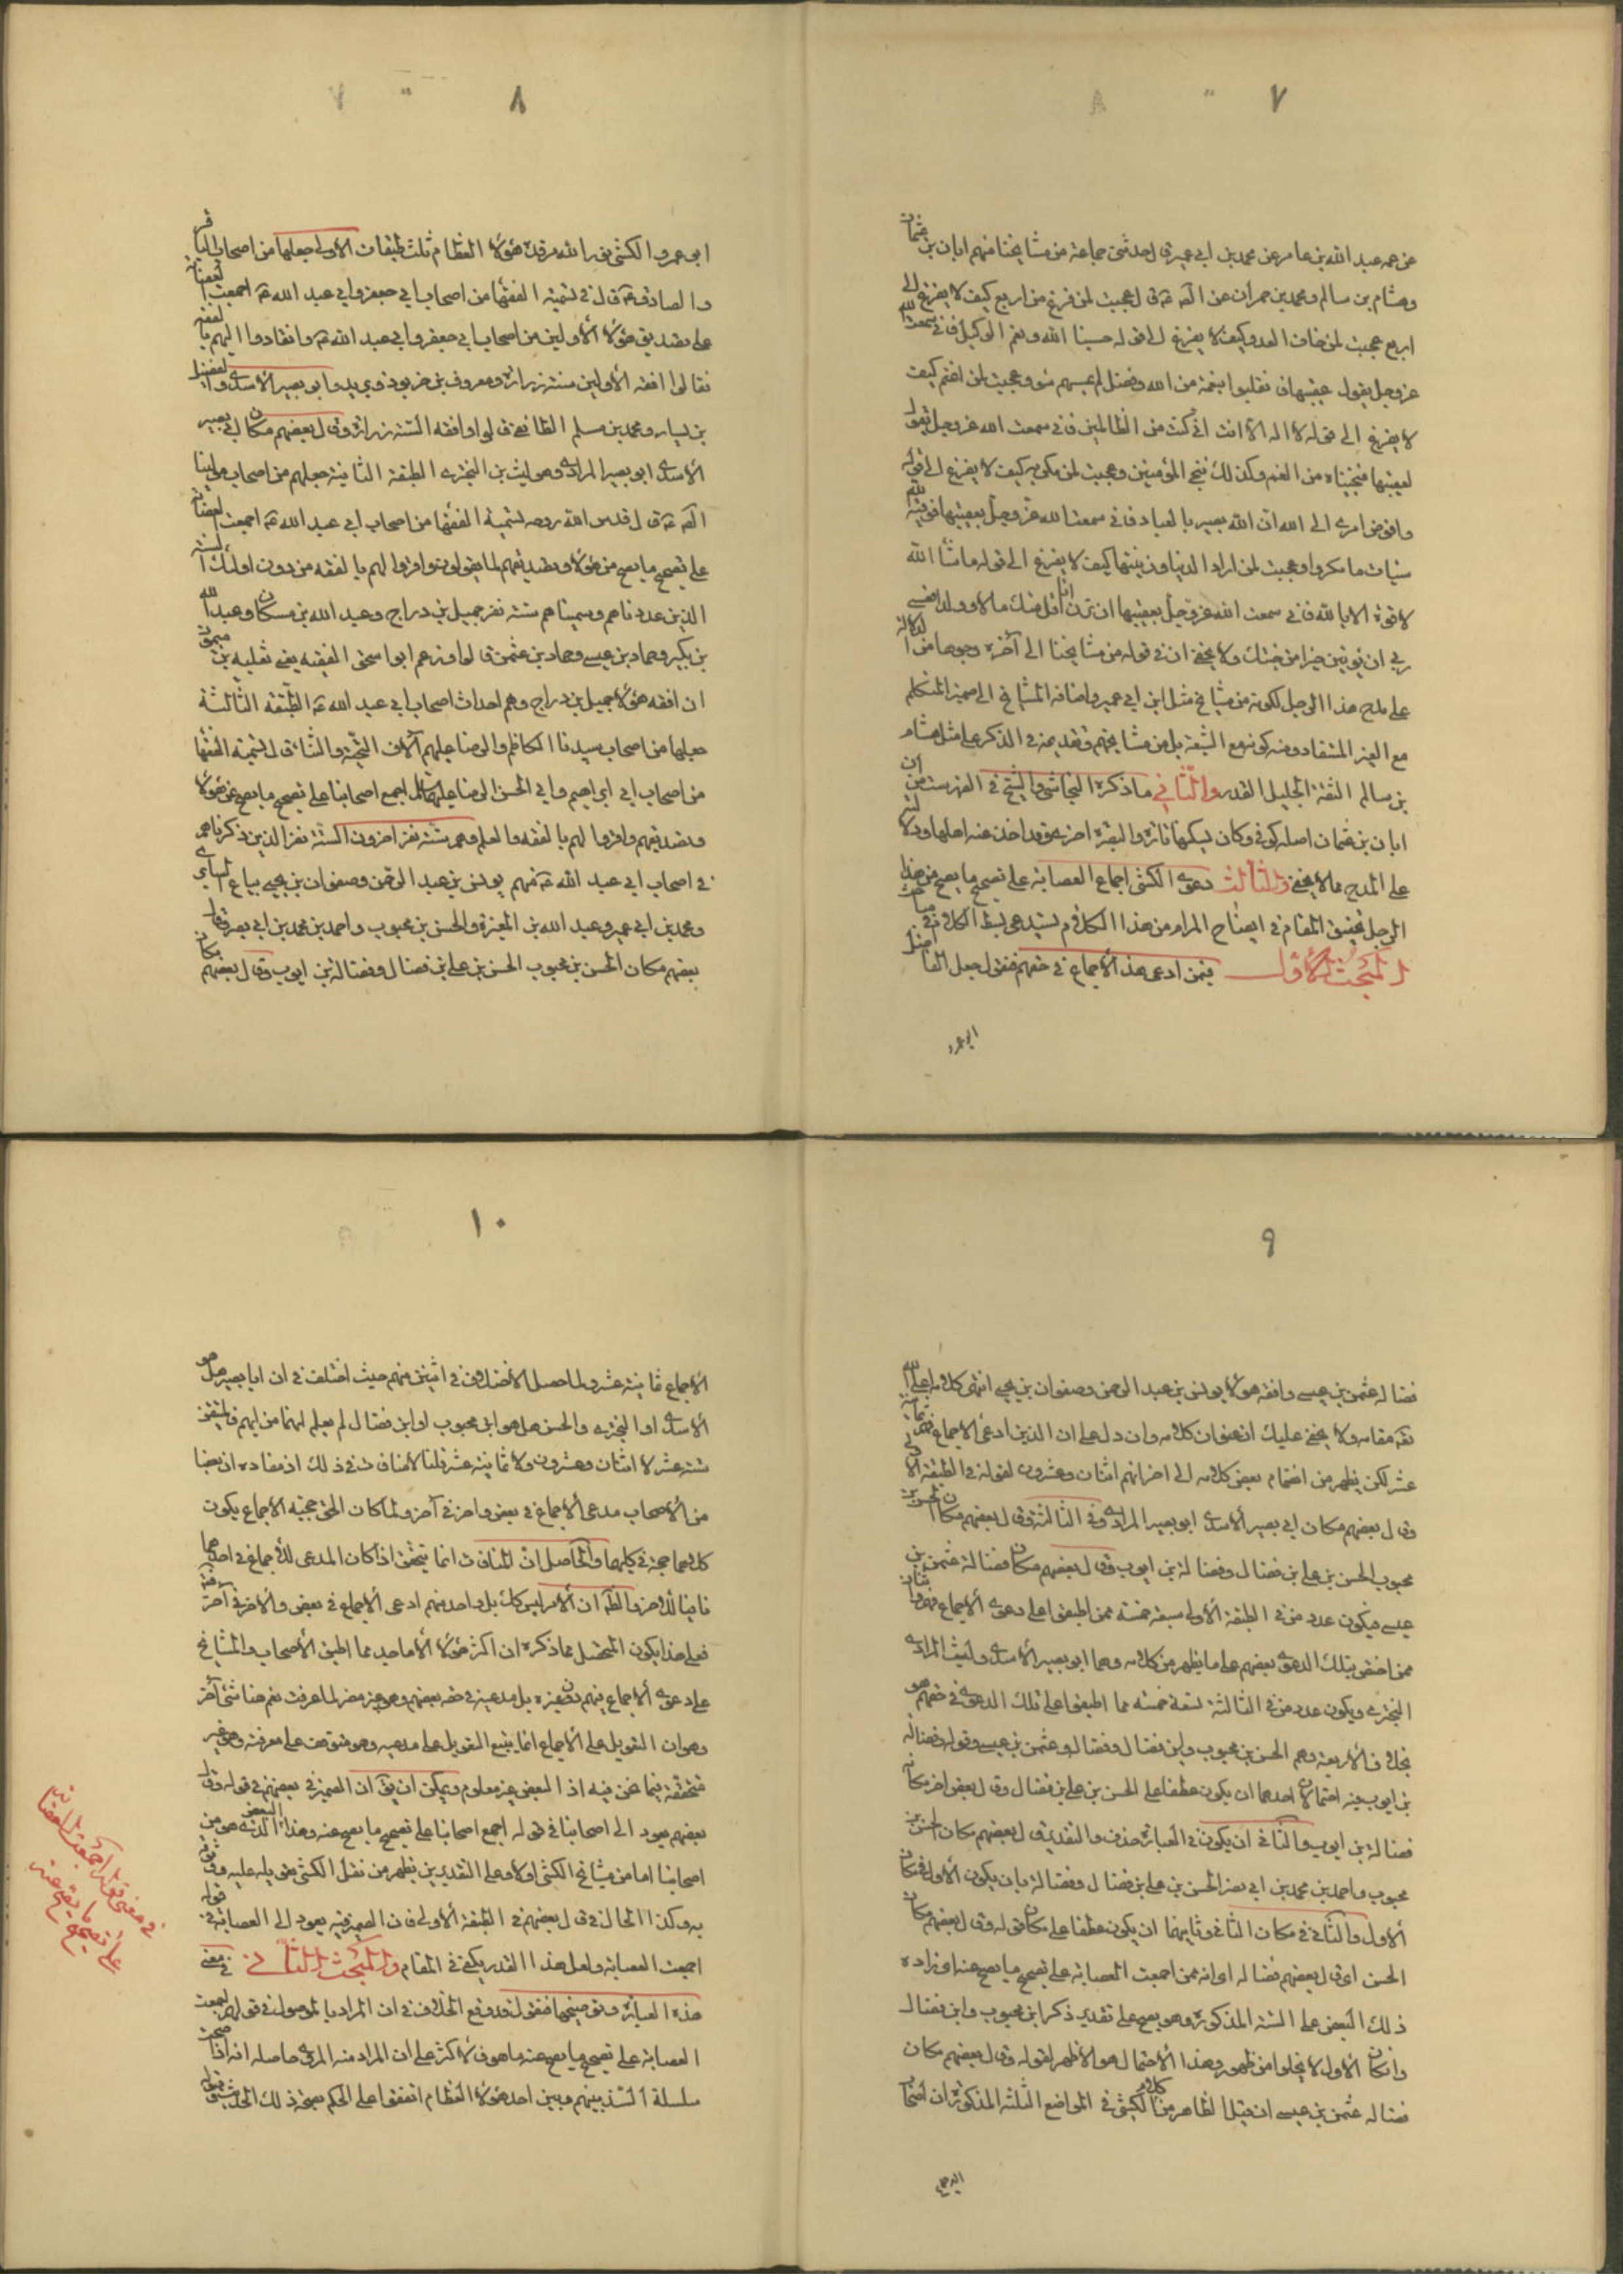 ٧
عن عمه عبد الله بن عامر عن محمد بن ابي عمير ق‍ال حدثني جماعة من مشايخنا منهم ابان بن عثمان
وهشام بن سالم ومحمد بن حمران عن الصَ عَ قال عجبت لمن فزع من اربع كيف لا يفزع الى
اربع عجبت لمن خاف العدو كيف لا يفزع الى قوله حسبنا الله ونعم الوكيل فاني سمعت الله
عز وجل يقول عقيبها فانقلبوا بنعمة من الله وفضل لم يمسسهم سوء وعجبت لمن اغتم كيف
لا يفزع الى قوله لا اله الا انت اني كنت من الظالمين فاني سمعت الله عز وجل يقول
بعقيبها فنجيناه من الغم وكذلك ننجي المؤمنين وعجبت لمن مكر به كيف لا يفزع الى قوله
وافوض امري الى الله ان الله بصير بالعباد فاني سمعت الله عز وجل بعقيبها فوقيه الله
سيئات ما مكروا وعجبت لمن اراد الدنيا وزينتها كيف لا يفزع الى قوله ما شاء الله
لا قوة الا بالله فاني سمعت الله عز وجل بعقيبها ان ترن انا اقل منك مالا وولدا فعسى
ربي ان يؤتين خيرا من جنتك ولا يخفى ان في قوله من مشايخنا الى آخره وجوها من الدلالة
على مدح هذا الرجل لكونه من مشايخ مثل ابن ابي عمير واضافة المشايخ الى ضمير المتكلم
مع الغير المستفاد منه كونه مع الشيعة بل من مشايخهم وتقديمه في الذكر على مثل هشام
بن سالم الثقة الجليل القدر والثاني ما ذكره النجاشي والشيخ في الفهرست من ان
ابان بن عثمان اصله كوفي وكان يسكنها تارة والبصرة اخرى وقد اخذ عنه اهلها ودلالته
على المدح مما لا يخفى والثالث دعوى الكشي اجماع العصابة على تصحيح ما يصح من هذا
الرجل تحقيق المقام في ايضاح المرام من هذا الكلام يستدعي بسط الكلام في مباحث
المبحث الاول فيمن ادعى هذا الاجماع في حقهم فنقول جعل الفاضل
ابو عمرو
٨
ابو عمرو الكشي نور الله مرقده هؤلاء العظام ثلث طبقات الاولى جعلها من اصحاب الباقر
والصادق عَ قال في تسمية الفقهاء من اصحاب ابي جعفر وابي عبد الله عَ اجمعت العصابة
على تصديق هؤلاء الاولين من اصحاب ابي جعفر وابي عبد الله عَ وانقادوا اليهم بالفقه
فقالوا افقه الاولين ستة زرارة ومعروف بن خربوذ وبريد وابو بصير الاسدي والفضيل
بن يسار ومحمد بن مسلم الطائفي قالوا وافقه الستة زرارة وقال بعضهم مكان ابي بصير
الاسدي ابو بصير المرادي وهو ليث بن البختري الطبقة الثانية جعلهم من اصحاب مولينا
الصَ عَ قال قدس الله روحه تسمية الفقهاء من اصحاب ابي عبد الله عَ اجمعت العصابة
على تصحيح ما يصح من هؤلاء وتصديقهم لما يقولون واقروا لهم بالفقه من دون اولئك الستة
الذين عددناهم وسميناهم ستة نفر جميل بن دراج وعبد الله بن مسكان وعبد الله
بن بكير وحماد بن عيسى وحماد بن عثمن قالوا وزعم ابو اسحق الفقيه يعني ثعلبة بن ميمون
ان افقه هؤلاء جميل بن دراج وهم احداث اصحاب ابي عبد الله عَ الطبقة الثالثة
جعلها من اصحاب سيدنا الكاظم والرضا عليهم آلاف التحية والثناء قال تسمية الفقهاء
من اصحاب ابي ابراهيم وابي الحسن الرضا عليهما السلام اجمع اصحابنا على تصحيح ما يصح عن هؤلاء
وتصديقهم واقروا لهم بالفقه والعلم وهم ستة نفر اخرون الستة نفر الذين ذكرناهم
في اصحاب ابي عبد الله عَ منهم يونس بن عبد الرحمن وصفوان بن يحيى بياع السابري
ومحمد بن ابي عمير وعبد الله بن المغيرة والحسن بن محبوب واحمد بن محمد بن ابي نصر وقال
بعضهم مكان الحسن بن محبوب الحسن بن علي بن فضال وفضالة بن ايوب وقال بعضهم مكان
٩
فضالة عثمن بن عيسى وافقه هؤلاء يونس بن عبد الرحمن وصفوان بن يحيى انتهى كلامه اعلى الله
تعَ مقامه ولا يخفى عليك ان عنوان كلامه وان دل على ان الذين ادعى الاجماع فهم ثمانية
عشر لكن يظهر من انضمام بعض كلامه الى اخر انهم اثنان وعشرون لقوله في الطبقة الاولى
وقال بعضهم مكان ابي بصير الاسدي ابو بصير المرادي وفي الثالثة وقال بعضهم مكان الحسن بن
محبوب الحسن بن علي بن فضال وفضالة بن ايوب وقال بعضهم مكان فضالة عثمن بن
عيسى فيكون عدد من في الطبقة الاولى سبعة خمسة ممن اطبقوا على دعوى الاجماع فيهم واثنان
ممن اختص بتلك الدعوى بعضهم على ما يظهر من كلامه وهما ابو بصير الاسدي وليث المرادي
البختري ويكون عدد من في الثالثة تسعة خمسة مما اطبقوا على تلك الدعوى في حقهم
بخلاف الاربعة وهم الحسن بن محبوب وابن فضال وفضالة وعثمن بن عيسى وقوله وفضالة
بن ايوب فيه احتمالان احدهما ان يكون عطفا على الحسن بن علي بن فضال وقال بعض اخر مكان
فضالة بن ايوب والثاني ان يكون في العبارة حذف والتقدير قال بعضهم مكان الحسن بن
محبوب واحمد بن محمد بن ابي نصر الحسن بن علي بن فضال وفضالة بان يكون الاول في مكان
الاول والثاني في مكان الثاني وثانيهما ان يكون عطفا على مكان قوله وقال بعضهم مكان
الحسن اي قال بعضهم فضالة اي انه ممن اجمعت العصابة على تصحيح ما يصح عنه اي زاده
ذلك البعض على الستة المذكورة وهو يصح على تقدير ذكر ابن محبوب وابن فضال
وان كان الاول لا يخلوا من ظهور وهذا الاحتمال هو الاظهر لقوله وقال بعضهم مكان
فضالة عثمن بن عيسى ان قيل الظاهر من كلام الكشي في المواضع الثلثة المذكورة ان اصحاب
الاجماع
١٠
الاجماع ثمانية عشر ولما حصل الاختلاف في اثنين منهم حيث اختلف في ان ابا بصير هل هو
الاسدي او البختري والحسن هل هو ابن محبوب او ابن فضال لم يعلم انهما من ايهم فالمتيقن
ستة عشر لا اثنان وعشرون ولا ثمانية عشر قلنا لا منافات في ذلك اذ مفاده ان بعضا
من الاصحاب مدعى الاجماع في بعض واخر في آخر ولما كان الحق حجية الاجماع يكون
كلاهما حجة في كليهما والحاصل ان المنافات انما يتحقق اذا كان المدعى للاجماع في احدهما
نافيا للاخر والظَ ان الامر ليس كك بل واحد منهم ادعى الاجماع في بعض والاخر في آخر منه
فعلى هذا يكون المتحصل مما ذكره ان اكثر هؤلاء الاماجد مما اطبق الاصحاب والمشايخ
على دعوى الاجماع فيهم دون غيره بل مدعيه في حقه بعضهم وهو غير مضر لما عرفت نعم هنا شيء آخر
وهو ان التعويل على الاجماع انما يتبع التعويل على مدعيه وهو متوقف على معرفته وهو غير
متحققة فيما نحن فيه اذ البعض غير معلوم ويمكن ان يقَ ان الضمير في بعضهم في قوله وقال
بعضهم يعود الى اصحابنا في قوله اجمع اصحابنا على تصحيح ما يصح عنه وهذا البعض الذي هو من
اصحابنا اما من مشايخ الكشي اولا وعلى التقديرين يظهر من نقل الكشي تعويله عليه وثوقه
به وكذا الحال في قال بعضهم في الطبقة الاولى فان الضمير فيه يعود الى العصابة في قوله
اجمعت العصابة ولعل هذا القدر يكفي في المقام والمبحث الثاني في معنى
هذه العبارة وتوضيحها فنقول قد وقع الخلاف في ان المراد بالموصول في قولهم اجمعت
العصابة على تصحيح ما يصح عنه ما هو فالاكثر على ان المراد منه المروي حاصله انه اذا صحت
سلسلة السند بينهم وبين احد هؤلاء العظام اتفقوا على الحكم بصحة ذلك الحديث
في معنى قوله اجمعت العصابة
على تصحيح ما يصح عنه